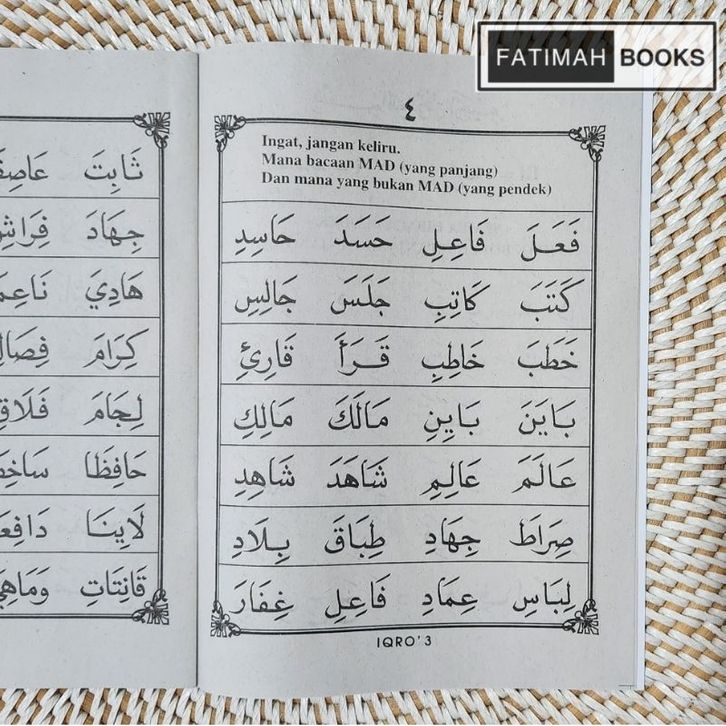 FATIMAH BOOKS
٤
Ingat, jangan keliru.
Mana bacaan MAD (yang panjang)
Dan mana yang bukan MAD (yang pendek)
فَعَلَ فَاعِلِ حَسَدَ حَاسِدِ
كَتَبَ كَاتِبِ جَلَسَ جَالِسِ
خَطَبَ خَاطِبِ قَرَأَ قَارِئِ
بَايَنَ بَايِنِ مَالَكَ مَالِكِ
عَالَمَ عَالِمِ شَاهَدَ شَاهِدِ
صِرَاطَ جِهَادِ طِبَاقَ بِلَادِ
لِبَاسِ عِمَادِ فَاعِلِ غِفَارَ
IQRO' 3
ثَابِتَ
جِهَادَ
هَادِيَ
كِرَامَ
لِجَامَ
حَافِظَا
لَايِنَا
قَانِتَاتِ